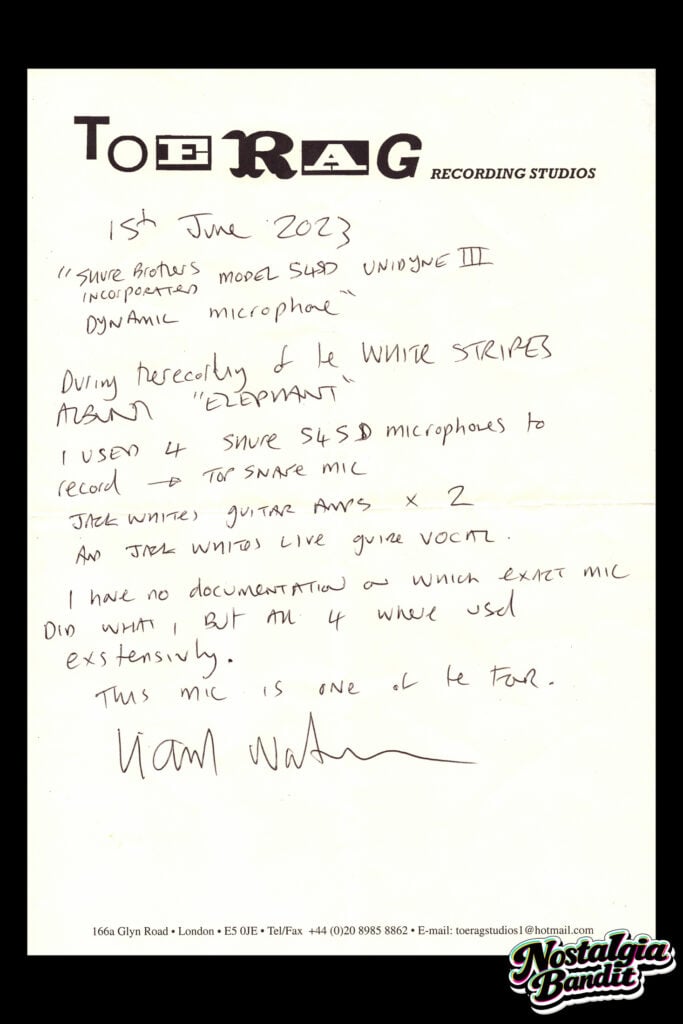 TOE RAG RECORDING STUDIOS
15th June 2023
"Shure Brothers
INCORPORATED MODEL 545D UNIDYNE III
DYNAMIC microphone"
During the recording of the WHITE STRIPES
ALBUM "ELEPHANT"
I USED 4 SHURE 545D microphones to
record → TOP SNARE MIC
JACK WHITES GUITAR AMPS x 2
AND JACK WHITES LIVE GUIDE VOCAL.
I have no documentation on which exact mic
DID WHAT, BUT ALL 4 where used
exstensivly.
THIS MIC IS ONE of the FOUR.
Liam Watson
166a Glyn Road • London • E5 0JE • Tel/Fax +44 (0)20 8985 8862 • E-mail: toeragstudios1@hotmail.com
Nostalgia
Bandit